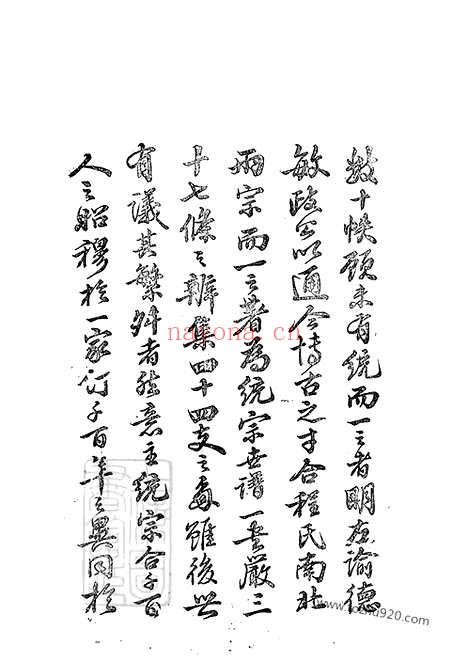 數十帙顧未有統而一之者明左諭德
敏政公以通今博古之才合程氏南北
兩宗而一之著為統宗世譜一書嚴三
十七條之辨集四十四支之雖後世
有議其繁舛者然意主統宗合千百
人之昭穆於一家訂千百年之異同於
nayona.cn